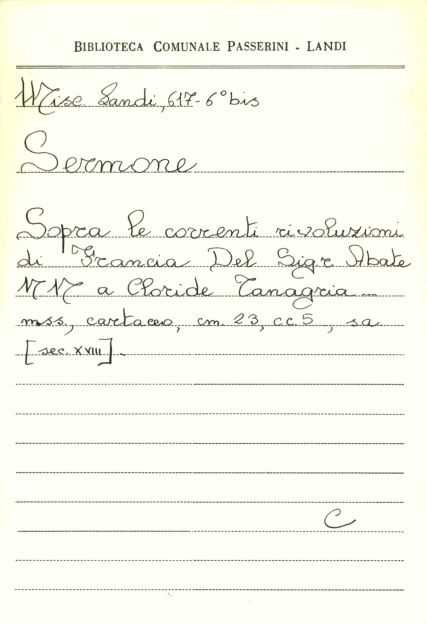 BIBLIOTECA COMUNALE PASSERINI - LANDI
Misc. Landi, 617-6° bis
Sermone
Sopra le correnti rivoluzioni
di Francia Del Sigr Abate
NN a Cloride Tanagria....
mss., cartaceo, cm. 23, cc. 5, s.a.
[sec. XVIII].
C